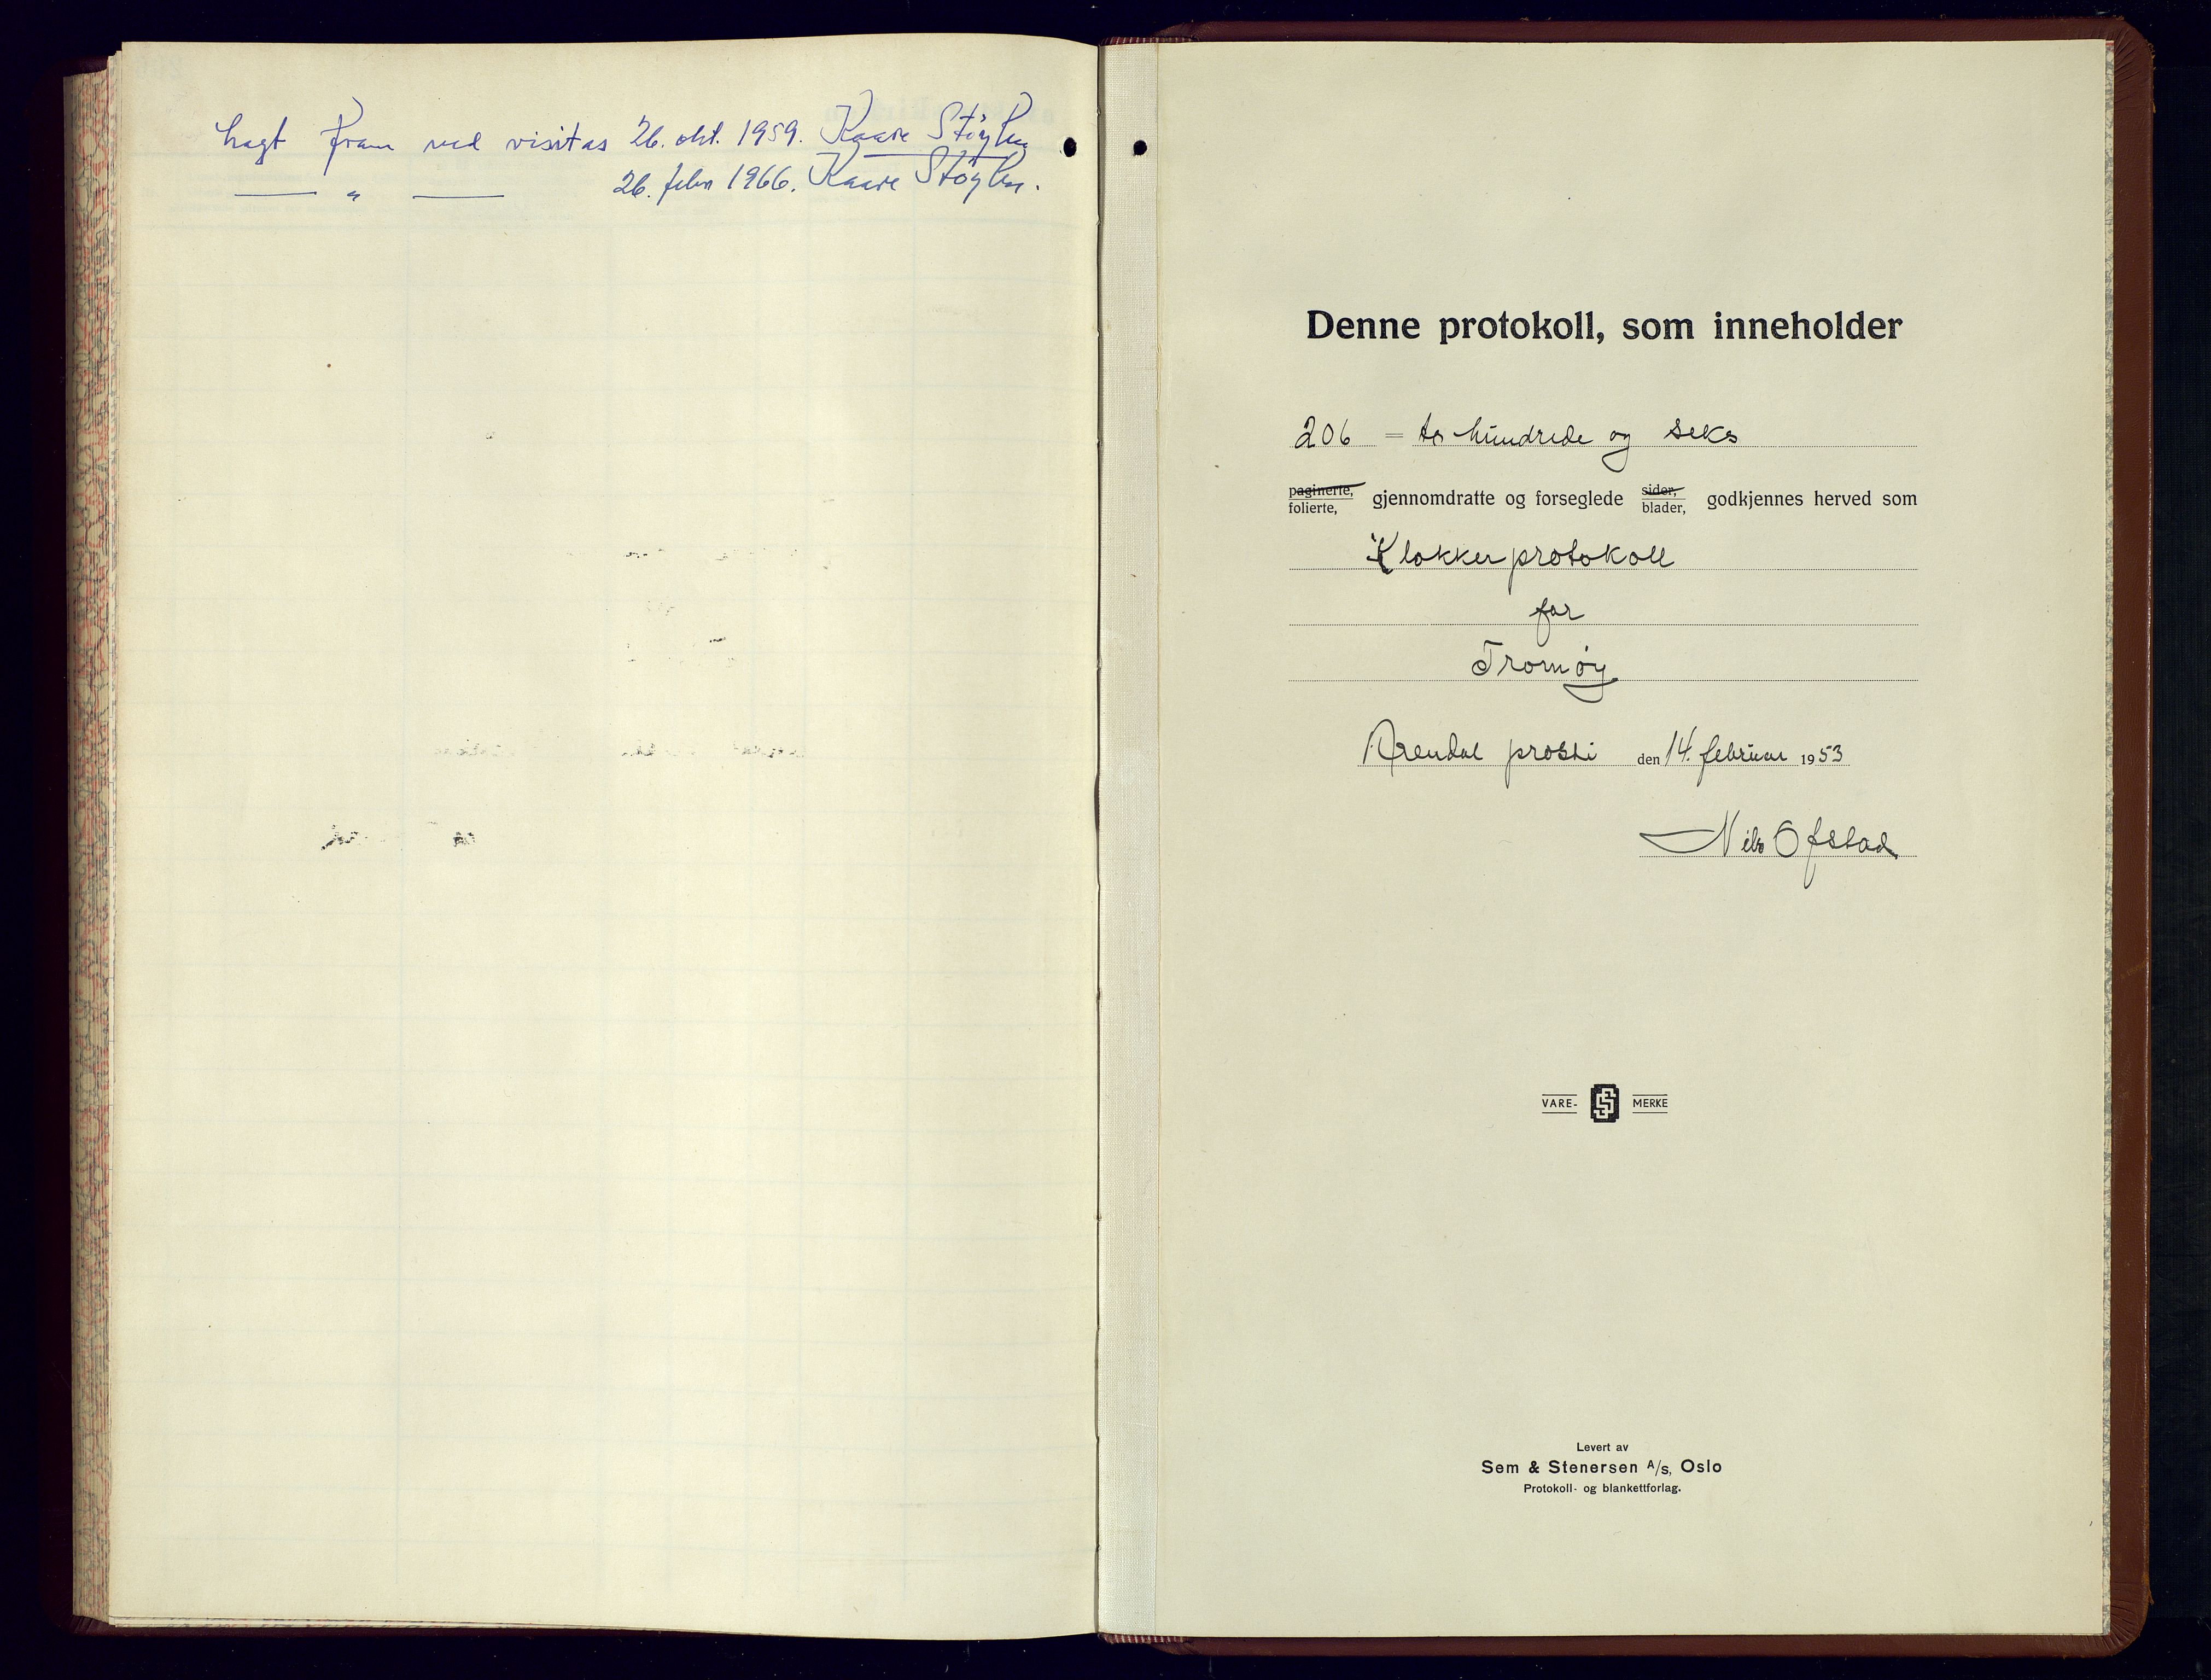 Lagt fram ved visitas 26. okt. 1959. Kaare Støylen
— " — 26. febr 1966. Kaare Støylen.
Denne protokoll, som inneholder
206 = to hundrede og seks
paginerte, folierte, gjennomdratte og forseglede sider, blader, godkjennes herved som
Klokkerprotokoll
for
Tromøy
Arendal prosti den 14. februar 1953
Nils Ofstad
VARE- MERKE
Levert av
Sem & Stenersen A/s, Oslo
Protokoll- og blankettforlag.